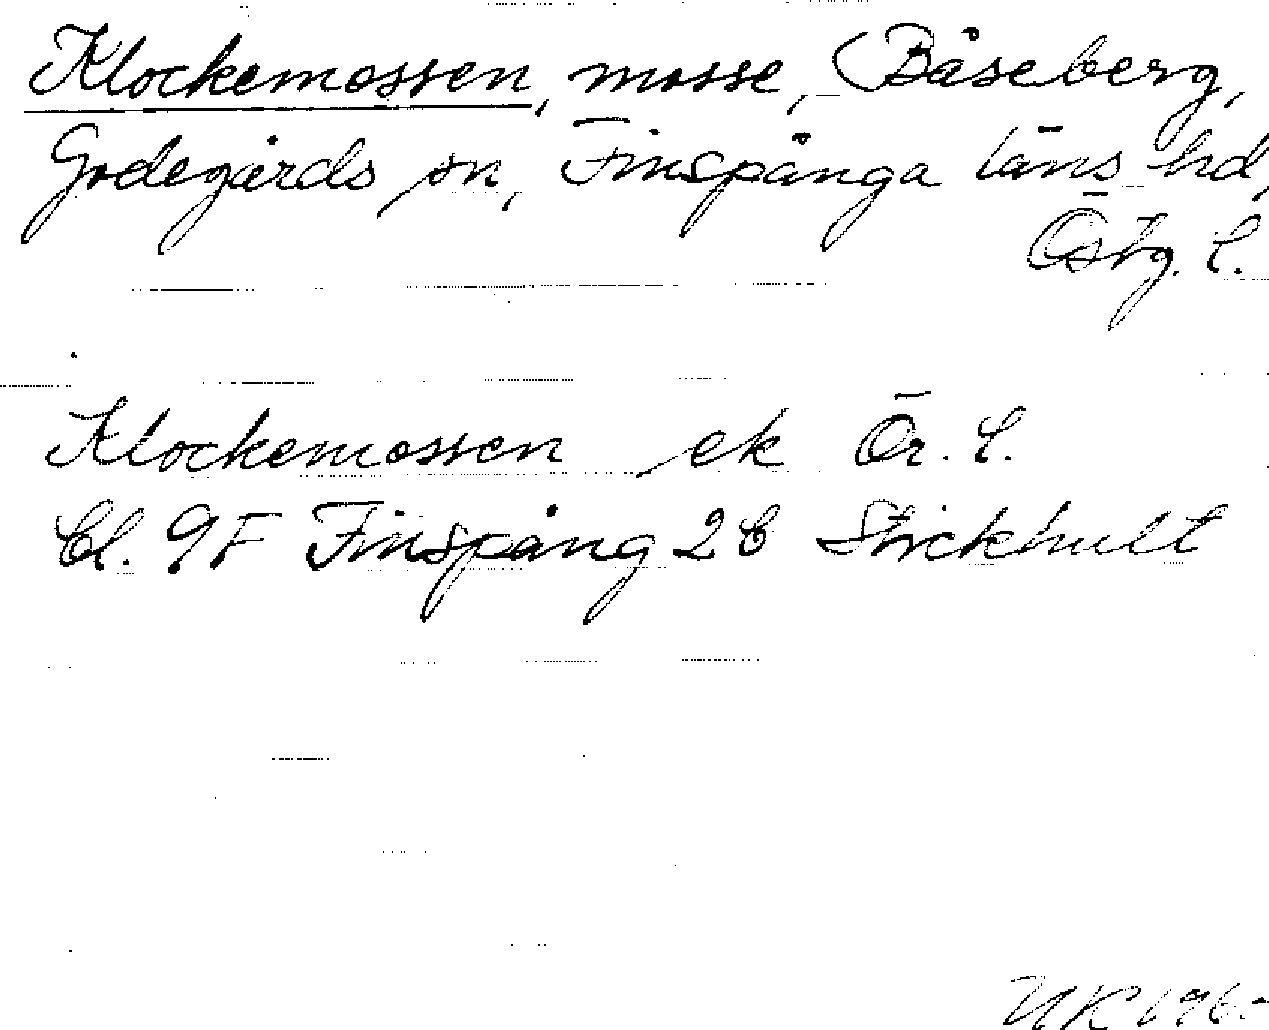 Klockemossen, mosse, Båseberg,
Godegårds sn, Finspånga läns hd,
Östg. l.
Klockemossen ek Ör. l.
Bl. 9F Finspång 2b Stickhult
UK